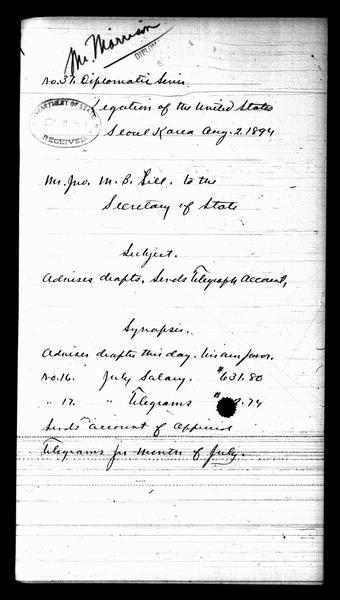 Mr. Morrison
DIPLOM
No. 37. Diplomatic Series
DEPARTMENT OF STATE
RECEIVED
Legation of the United States
Seoul Korea Aug. 2. 1894
Mr. Jno. M. B. Sill. to the
Secretary of State
Subject.
Advises drafts, Sends Telegraph Account,
Synopsis.
Advises drafts this day. his own favor.
No. 16. July Salary. $631.80
" 17. " Telegrams $ .74
Sends account of Official
Telegrams for month of July.